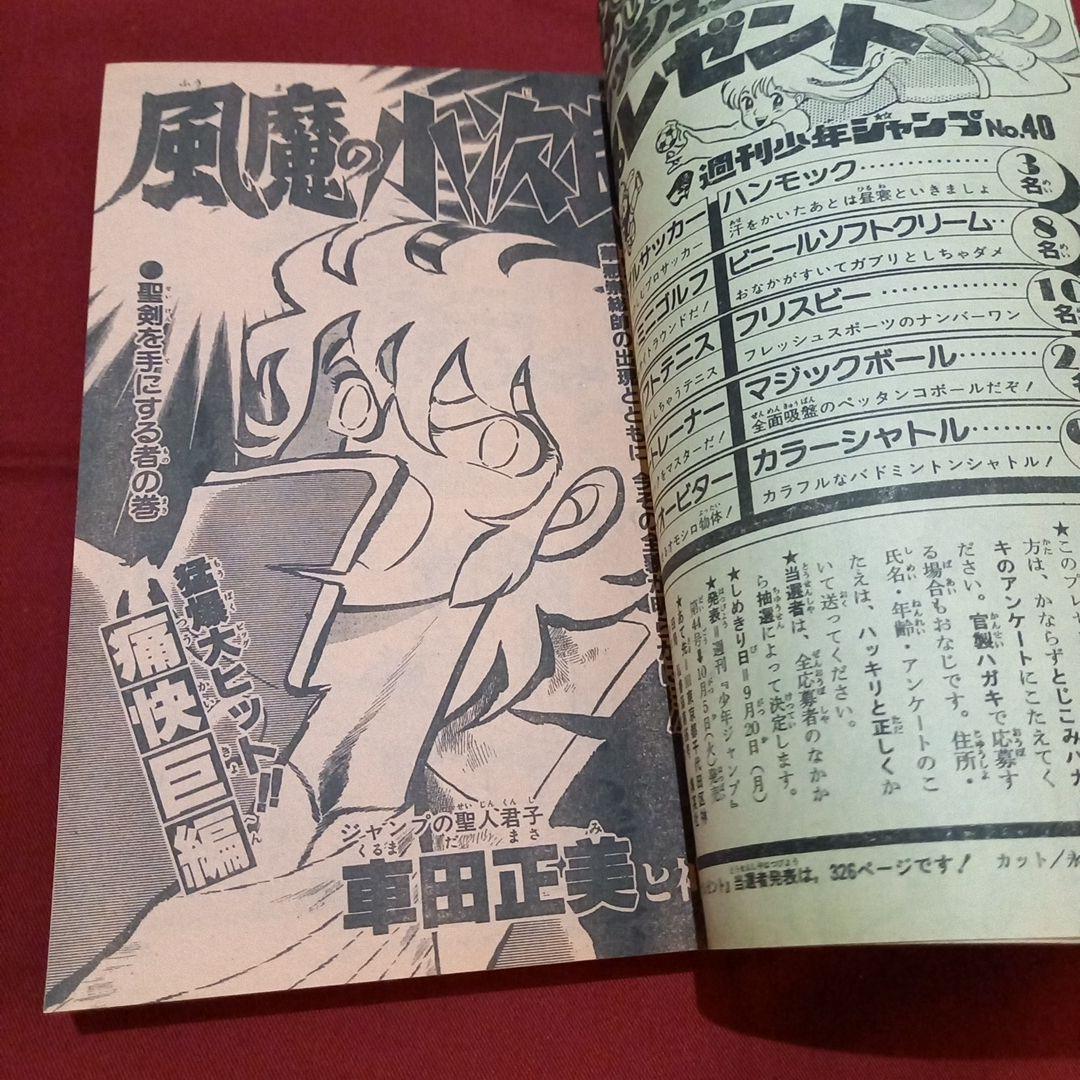 風魔の小次
●聖剣を手にする者の巻
猛爆大ヒット!!
痛快巨編
ジャンプの聖人君子
車田正美と
レゼント
週刊少年ジャンプNo.40
ハンモック………… 3名
汗をかいたあとは昼寝といきましょ
ビニールソフトクリーム‥ 8名
おなかがすいてガブリとしちゃダメ
フリスビー………… 10名
フレッシュスポーツのナンバーワン
マジックボール………
全面吸盤のペッタンコボールだぞ!
カラーシャトル………
カラフルなバドミントンシャトル!
ルサッカー
プロサッカー
ニゴルフ
ラウンドだ!
トテニス
しちゃうテニス
トレーナー
をマスターだ!
オービター
オモシロ物体!
★このプレ
方は、かならずとじこみハガ
キのアンケートにこたえてく
ださい。官製ハガキで応募す
る場合もおなじです。住所・
氏名・年齢・アンケートのこ
たえは、ハッキリと正しくか
いて送ってください。
★当選者は、全応募者のなかか
ら抽選によって決定します。
★しめきり日=9月20日(月)
★発表=週刊『少年ジャンプ』
第44号・10月5日(火)発売
ゼント』当選者発表は、326ページです! カット/